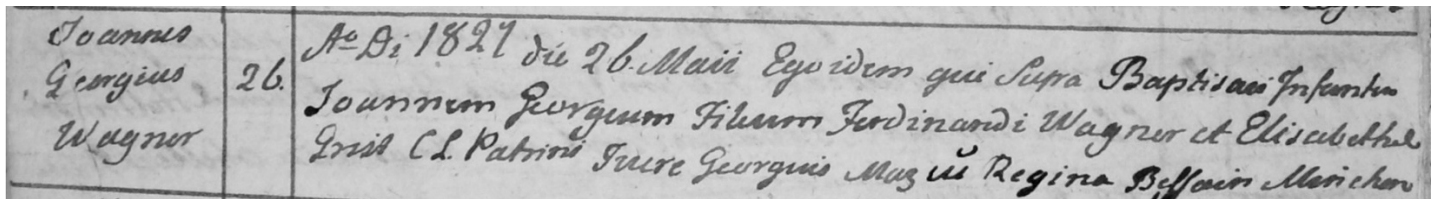 Joannes
Georgius
Wagner
26.
Ao Di 1827 die 26. Maii Ego idem qui Supra Baptisavi Infantem
Joannem Georgium Filium Ferdinandi Wagner et Elisabethae
Grist C L. Patrini Fuere Georgius et Regina